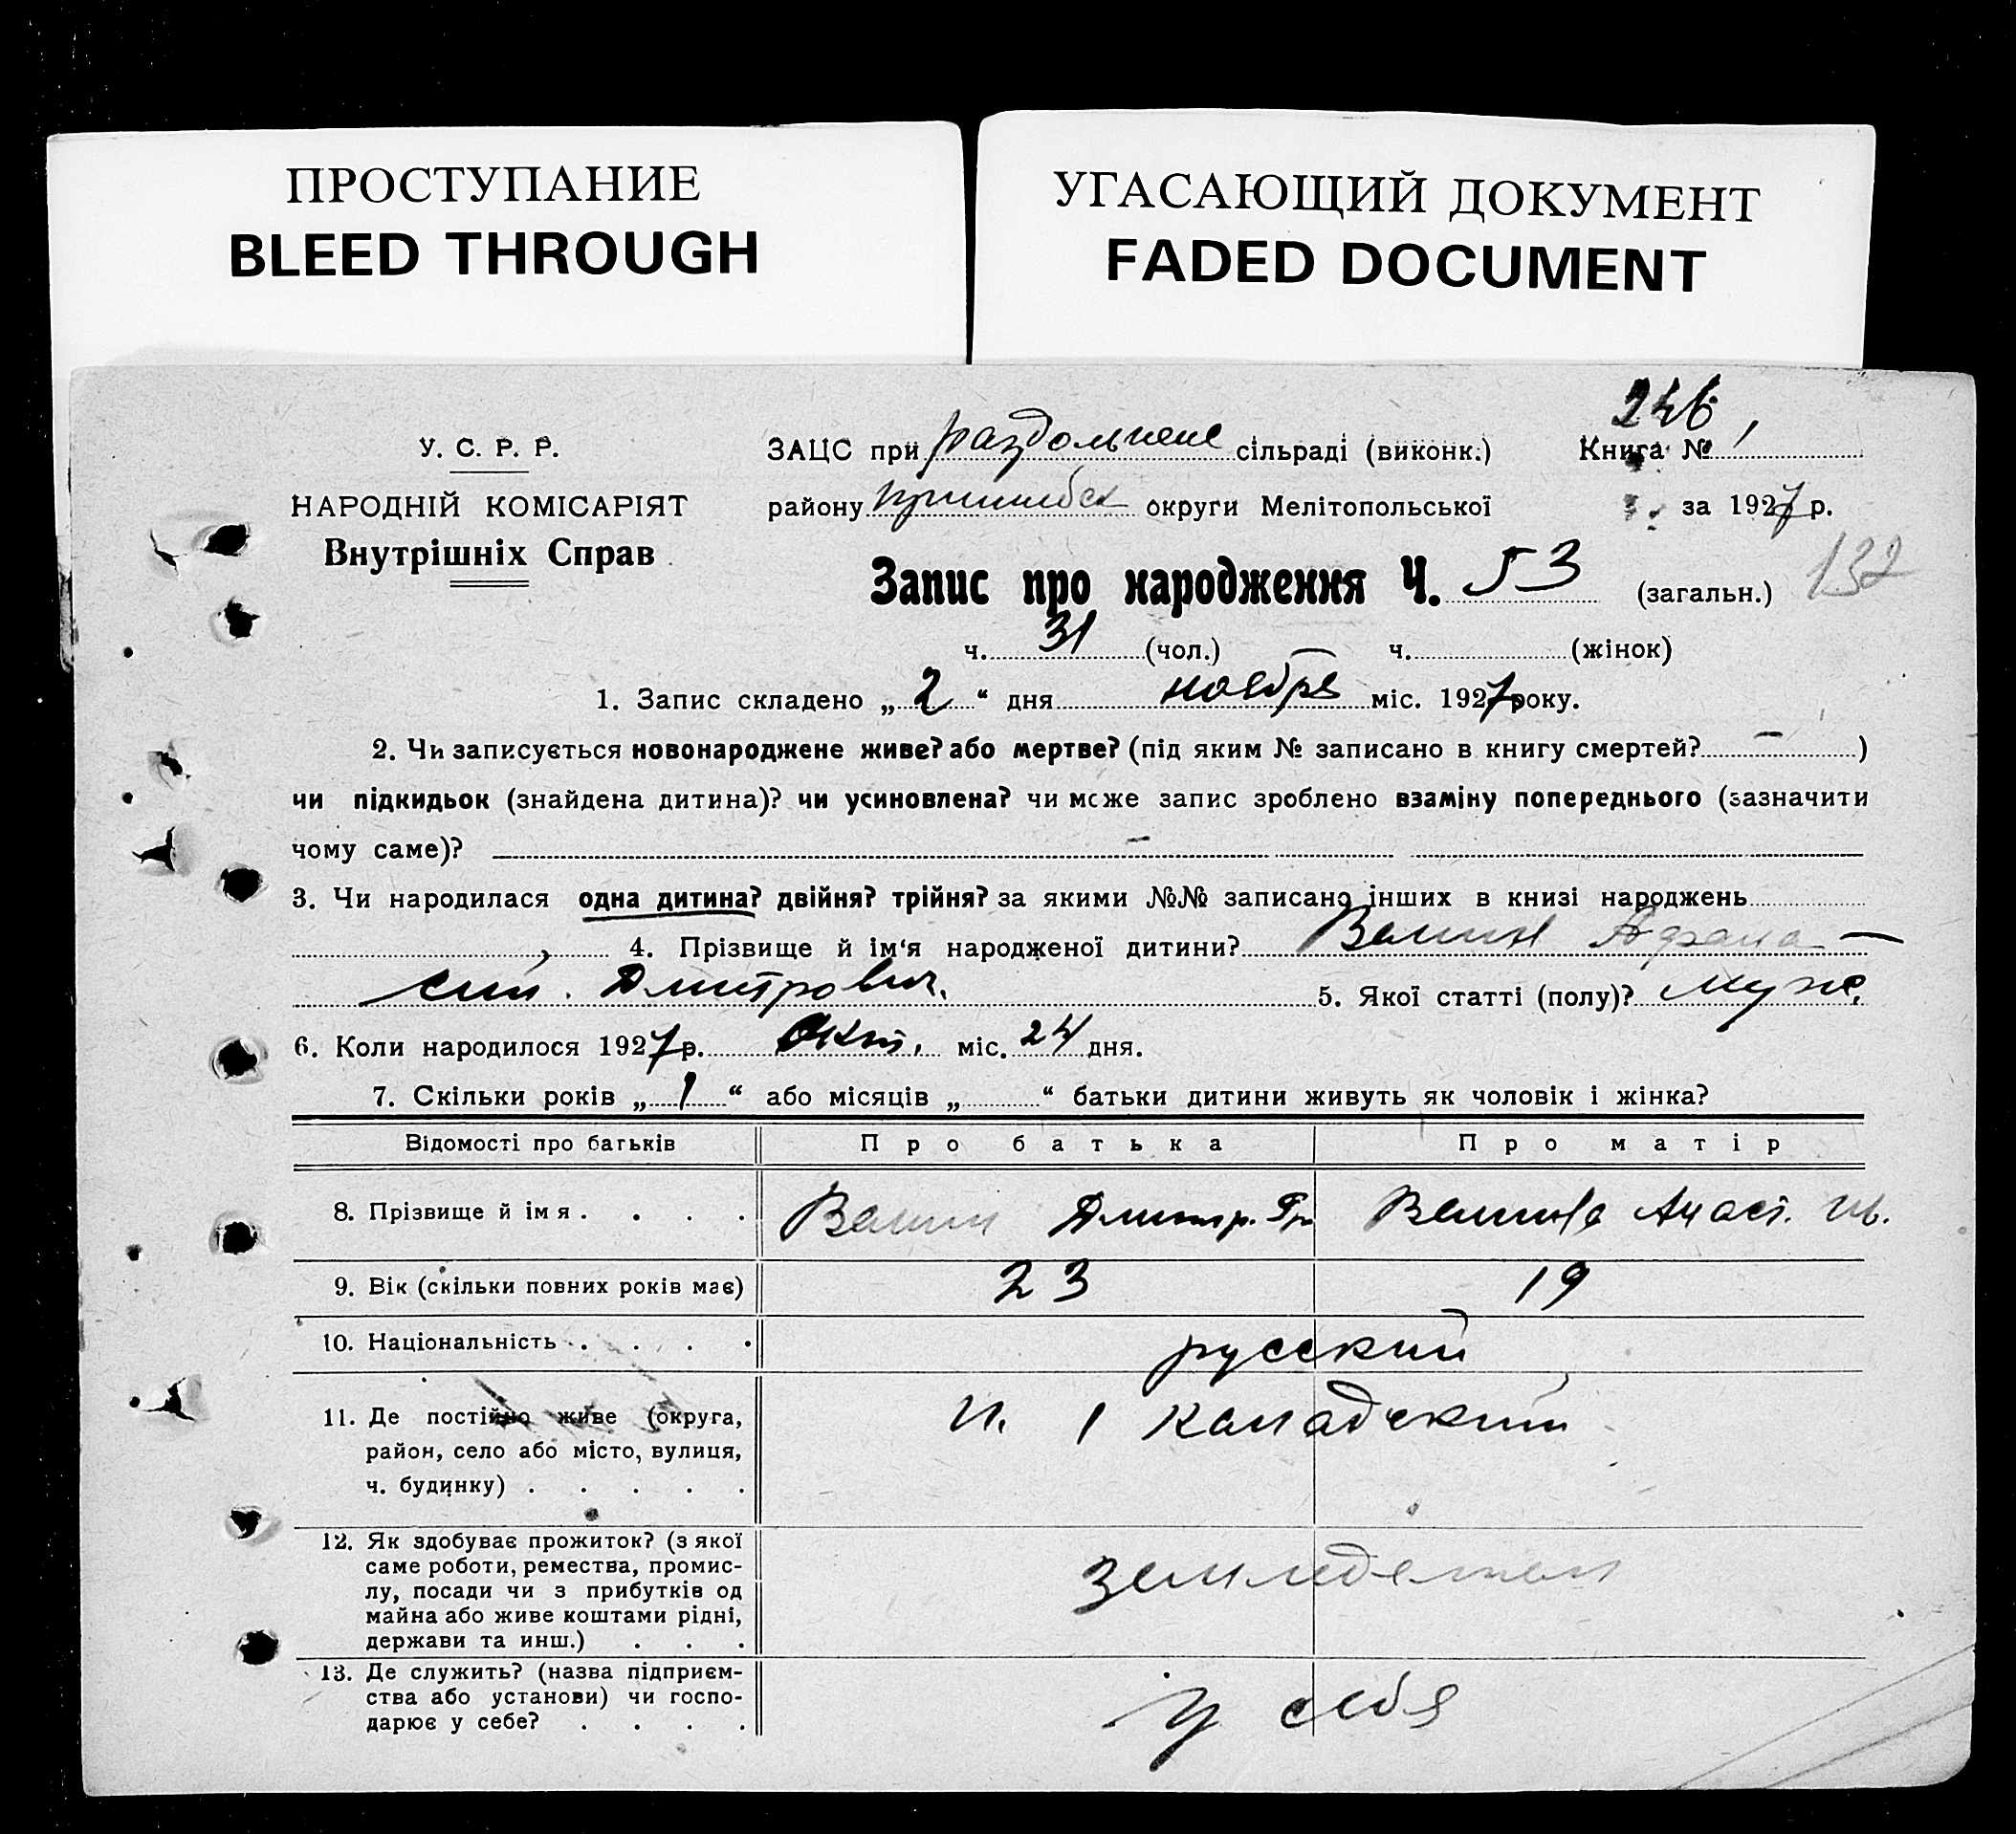 ПРОСТУПАНИЕ
BLEED THROUGH
УГАСАЮЩИЙ ДОКУМЕНТ
FADED DOCUMENT
246
У. С. Р. Р.
НАРОДНІЙ КОМІСАРІЯТ
Внутрішніх Справ
ЗАЦС при раздольнене сільраді (виконк.) Книга №
району пришибск округи Мелітопольської за 1927 р.
Запис про народження Ч. 53 (загальн.) 132
ч. 31 (чол.) — ч. (жінок)
1. Запис складено „2“ дня ноября міс. 1927 року.
2. Чи записується новонароджене живе? або мертве? (під яким № записано в книгу смертей? — )
чи підкидьок (знайдена дитина)? чи усиновлена? чи може запис зроблено взаміну попереднього (зазначити
чому саме)? —
3. Чи народилася одна дитина? двійня? трійня? за якими №№ записано інших в книзі народжень
4. Прізвище й ім‘я народженої дитини? Афана—
сий. Дмитрович. 5. Якої статті (полу)? муж.
6. Коли народилося 1927 р. Окт. міс. 24 дня.
7. Скільки років „1“ або місяців „ “ батьки дитини живуть як чоловік і жінка?
Відомості про батьків Про батька Про матір
8. Прізвище й імя . . . . Дмитр. Гр Анаст. Ив.
9. Вік (скільки повних років має) 23 19
10. Національність . . . . русский
11. Де постійно живе (округа, п. 1 Канадский
район, село або місто, вулиця,
ч. будинку) . . . . .
12. Як здобуває прожиток? (з якої
саме роботи, ремества, промис-
лу, посади чи з прибутків од земледелец
майна або живе коштами рідні,
держави та инш.) . . .
13. Де служить? (назва підприєм-
ства або установи) чи госпо- у себя
дарює у себе? . . . .